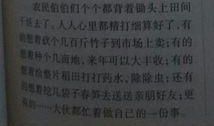 农民伯伯们个个都背着锄头上田间
干活去了。人人心里都精打细算好了，有
的想着砍个几百斤竹子到市场上卖；有的
想着种个几亩地，来年可以大丰收；有的
想着给整片稻田打打药水，除除虫；还有
的想着挖几袋子春笋去送送亲朋好友；更
有的……大伙都忙着做自己的一份事。